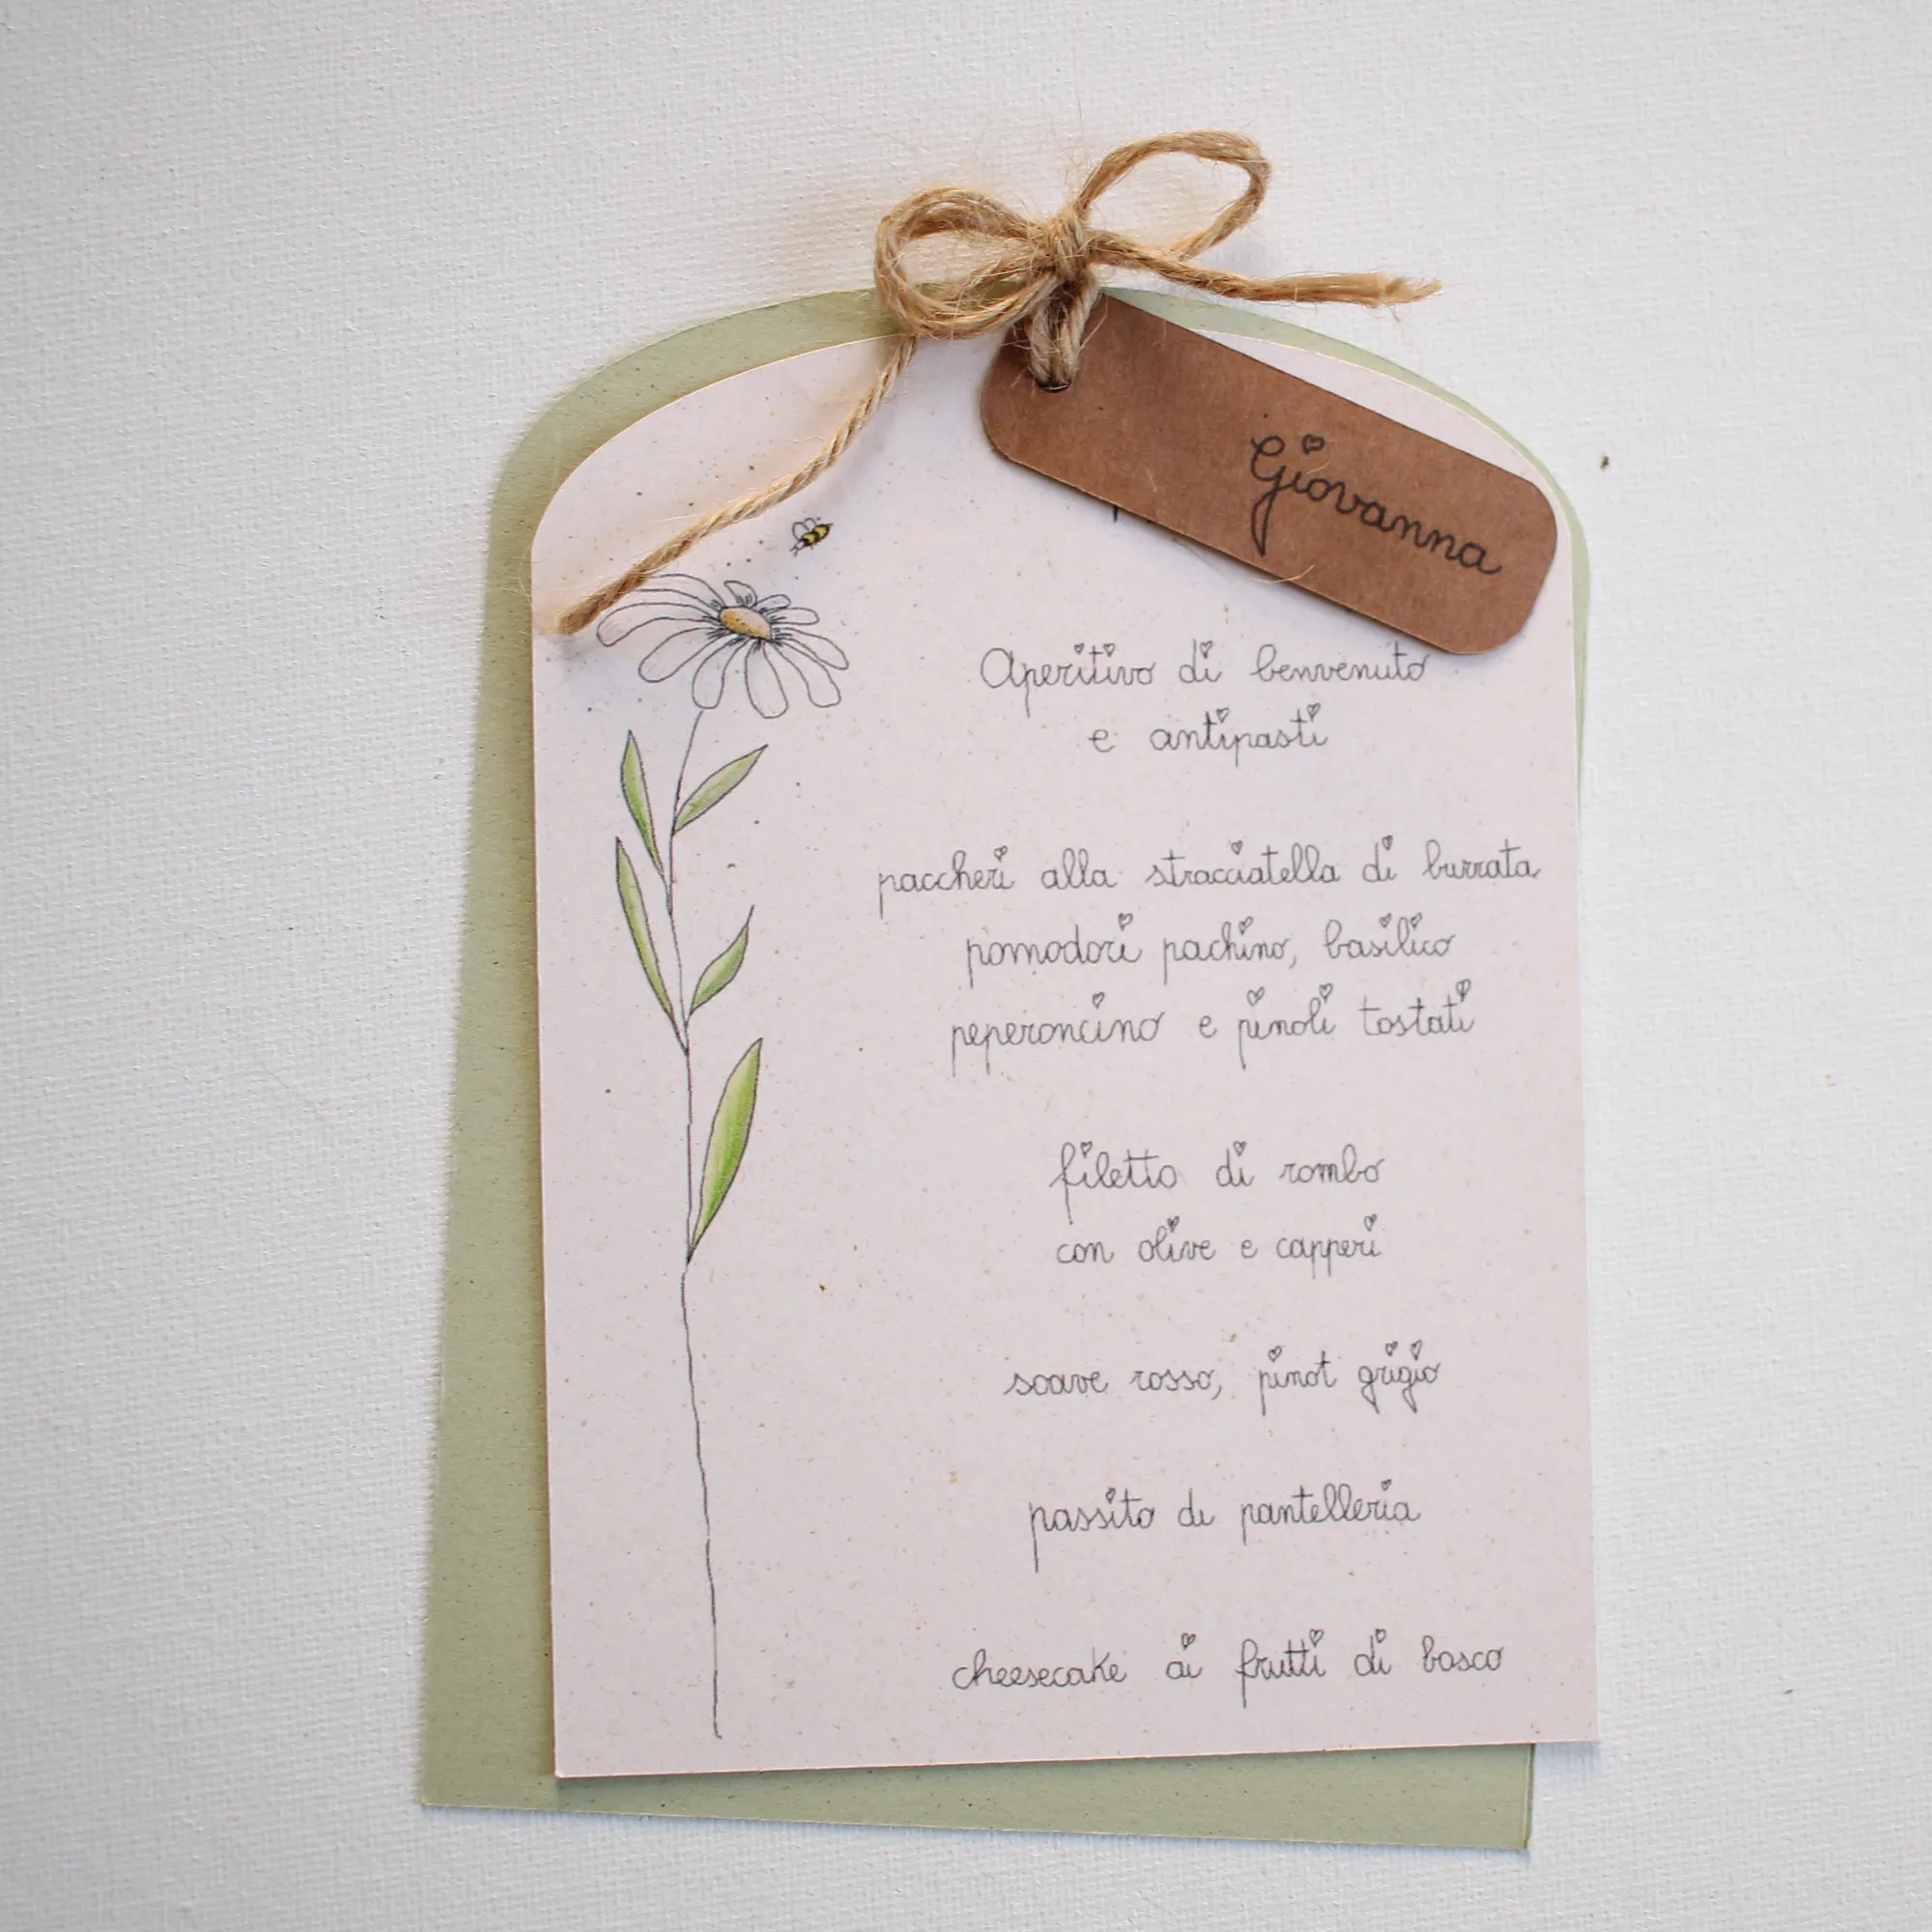 Giovanna
Aperitivo di benvenuto
e antipasti
paccheri alla stracciatella di burrata
pomodori pachino, basilico
peperoncino e pinoli tostati
filetto di rombo
con olive e capperi
soave rosso, pinot grigio
passito di pantelleria
cheesecake ai frutti di bosco